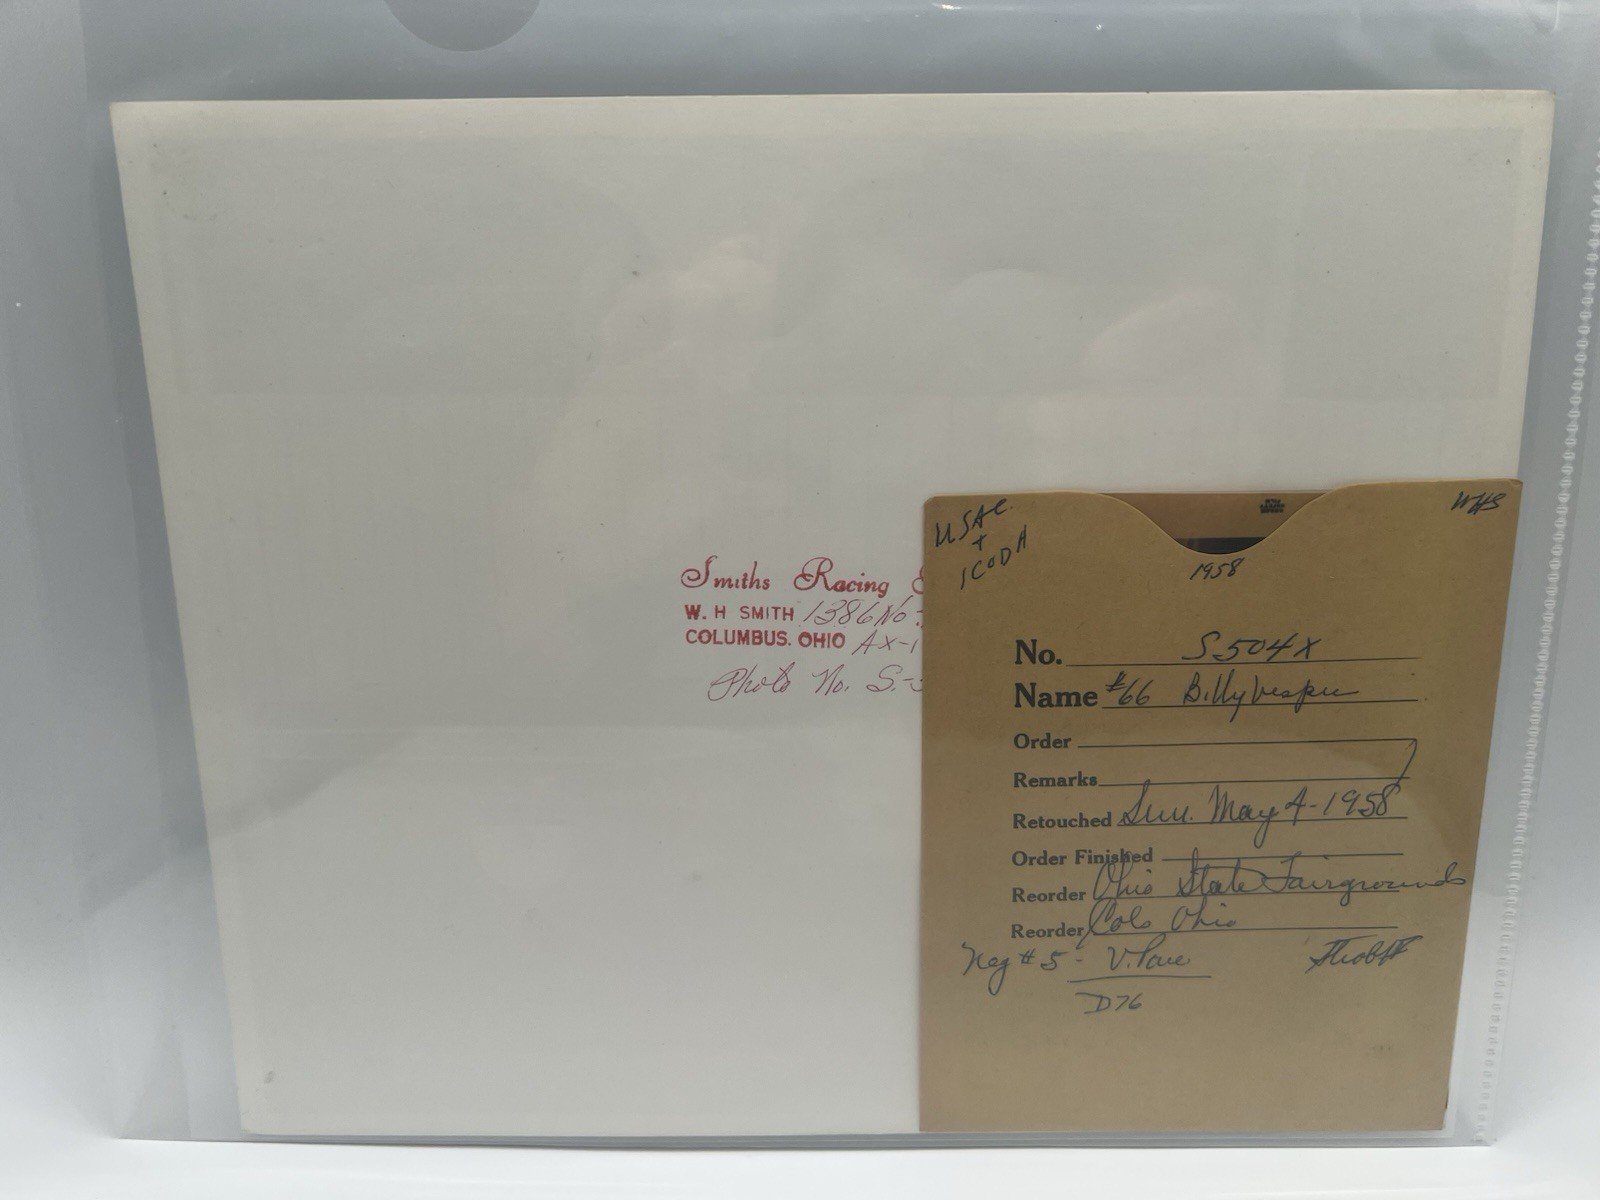 Smiths Racing
W. H SMITH 1386 No
COLUMBUS. OHIO AX-1
Photo No. S-
USAC
+
ICODA
WHS
1958
No. S504X
Name #66 Billy Vesper
Order
Remarks
Retouched Sun. May 4-1958
Order Finished
Reorder Ohio State Fairgrounds
Reorder Cols Ohio
Neg #5 -
D76